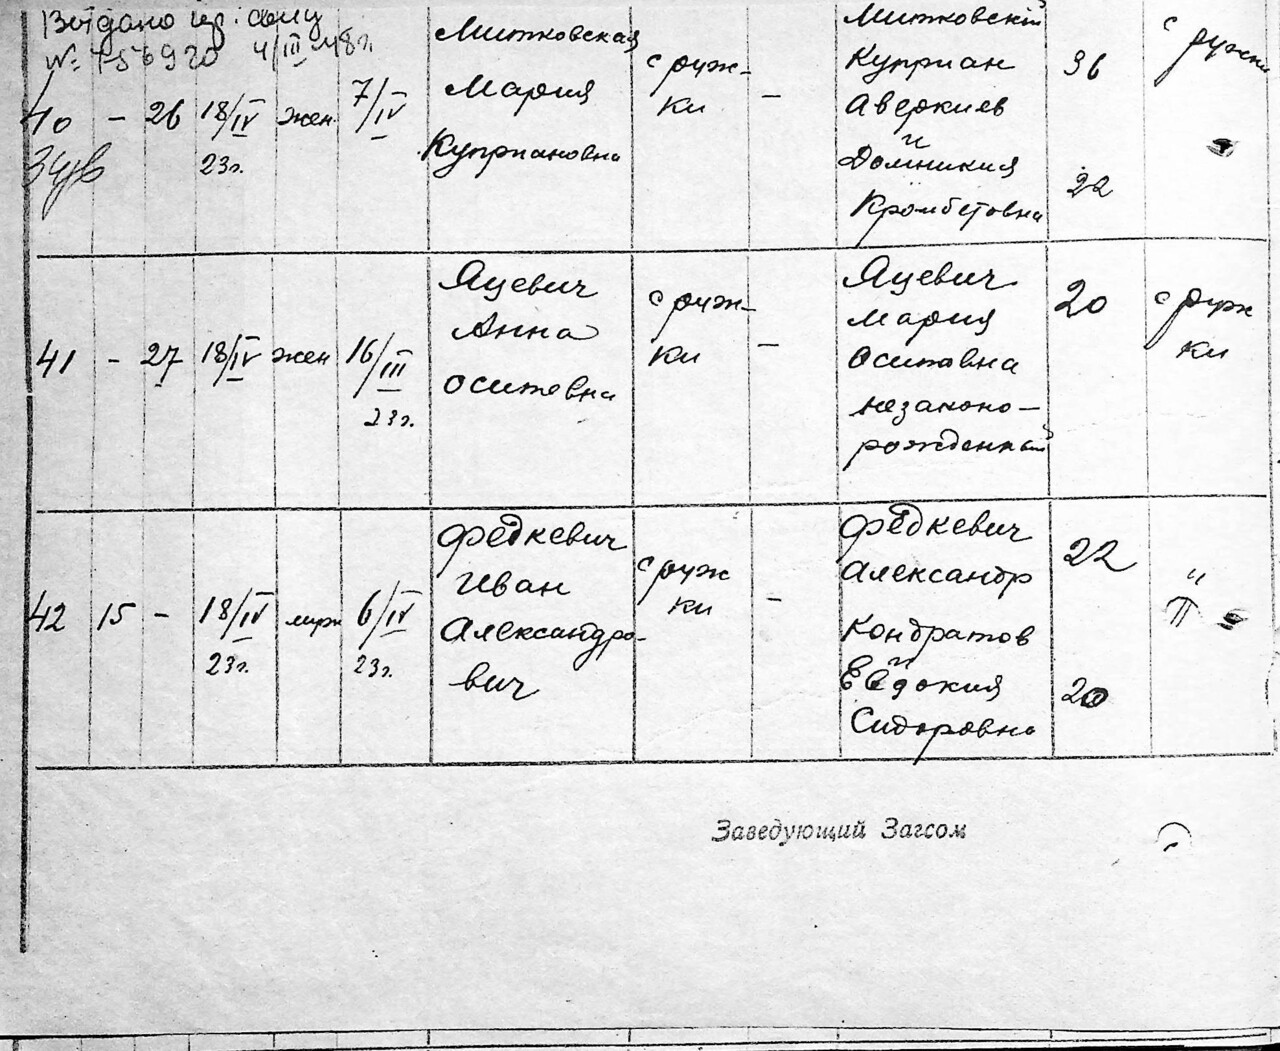 Выдано
№ 4/III-48г.
40 - 26 18/IV 23г. жен. 7/IV
Митковская
Мария
Куприановна
с руж-
ки
-
Митковский
Куприан
Аверкиев
и
Домникия
36
22
с ружки
41 - 27 18/IV жен 16/III 23г.
Яцевич
Анна
Осиповна
с руж-
ки
-
Яцевич
Мария
Осиповна
незаконо-
рожденный
20
с руж
ки
42 15 - 18/IV 23г. 6/IV 23г.
Федкевич
Иван
Александро-
вич
с руж
ки
-
Федкевич
Александр
Кондратов
и
Евдокия
Сидоровна
22
20
"
Заведующий Загсом